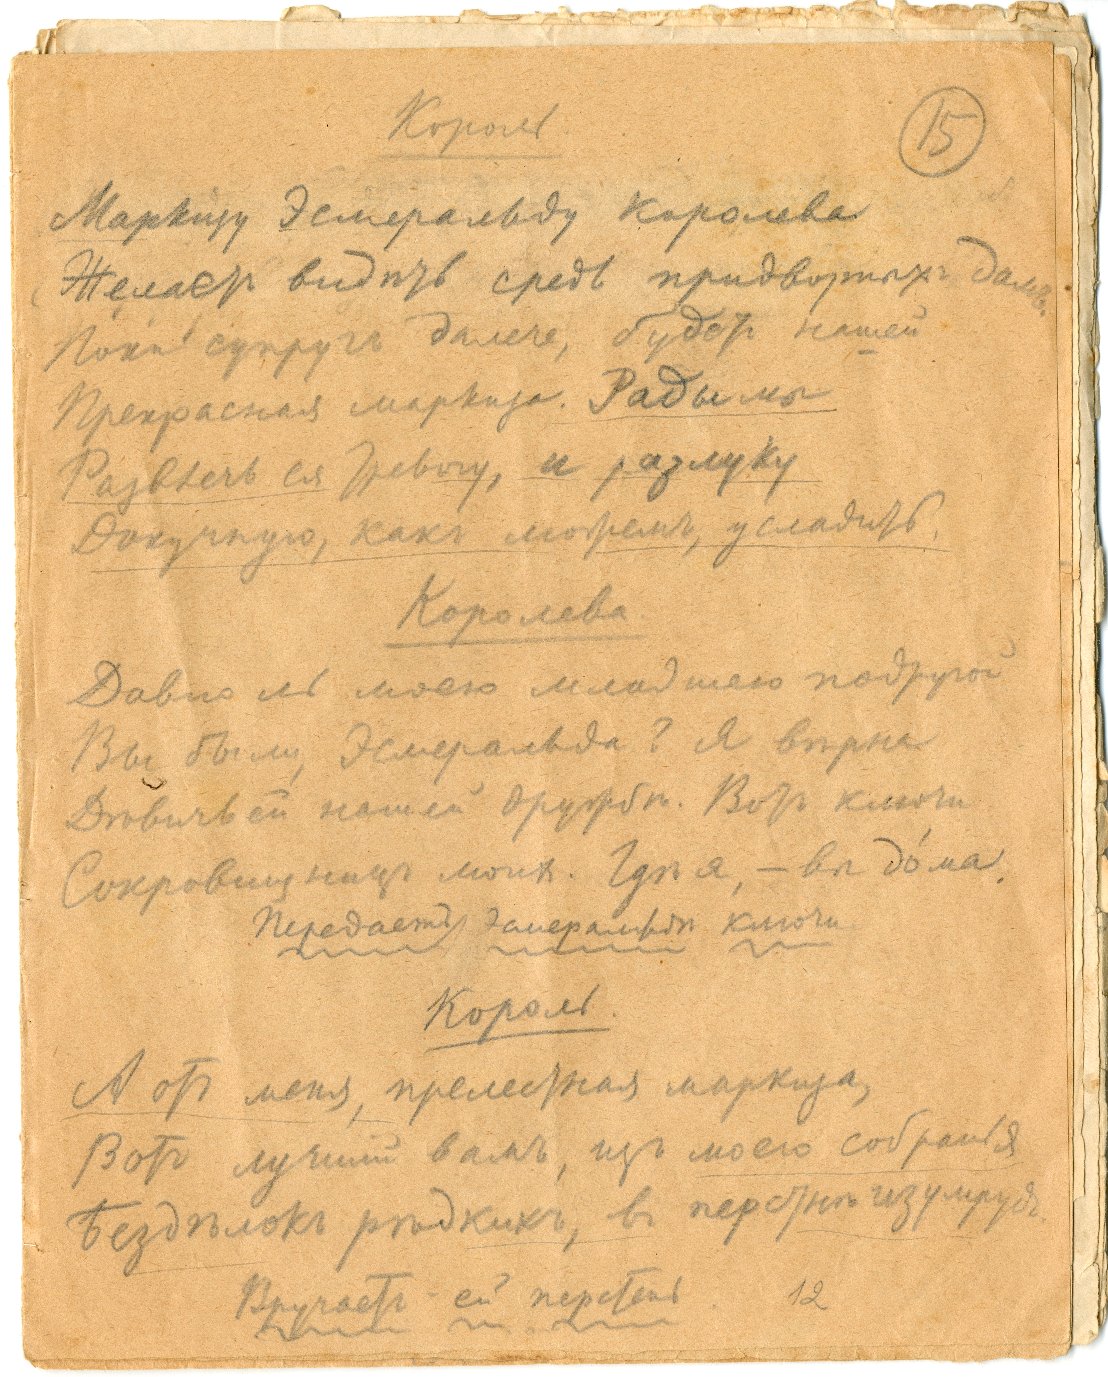 Король.
15
Маркизу Эсмеральду королева
Желаетъ видѣть средь придворныхъ дамъ.
Пока́ супругъ далече, будетъ нашей
Прекрасная маркиза. Рады мы
Развлечь ея тревогу, и разлуку
Докучную, какъ можемъ, усладить.
Королева.
Давно ль моею младшею подругой
Вы были, Эсмеральда? Я вѣрна
Дѣвичьей нашей дружбѣ. Вотъ ключи
Сокровищницъ моихъ. Гдѣ я, – вы до́ма.
Передаетъ Эсмеральдѣ ключи
Король.
А отъ меня, прелестная маркиза,
Вотъ лучшій вамъ, изъ моего собранья
Бездѣлокъ рѣдкихъ, въ перстнѣ изумрудъ.
Вручаетъ ей перстень.
12